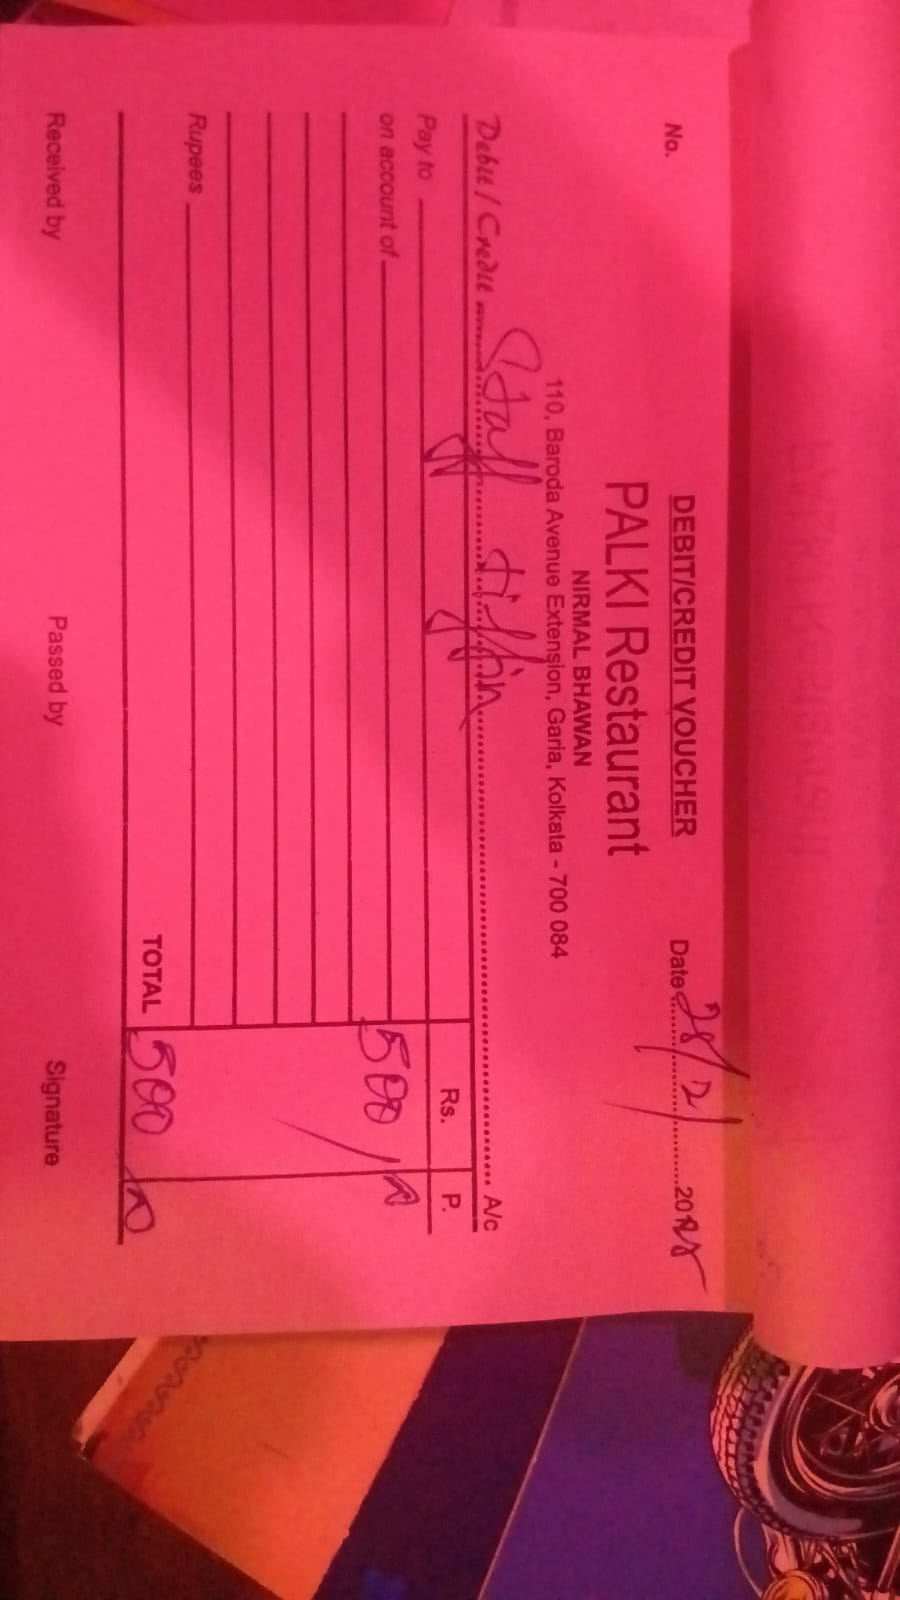 DEBIT/CREDIT VOUCHER
No. Date 28/2/ 20
PALKI Restaurant
NIRMAL BHAWAN
110, Baroda Avenue Extension, Garia, Kolkata - 700 084
Debit / Credit Staff tiffin A/c
Pay to Rs. P.
on account of 500/
Rupees
TOTAL 500
Received by Passed by Signature